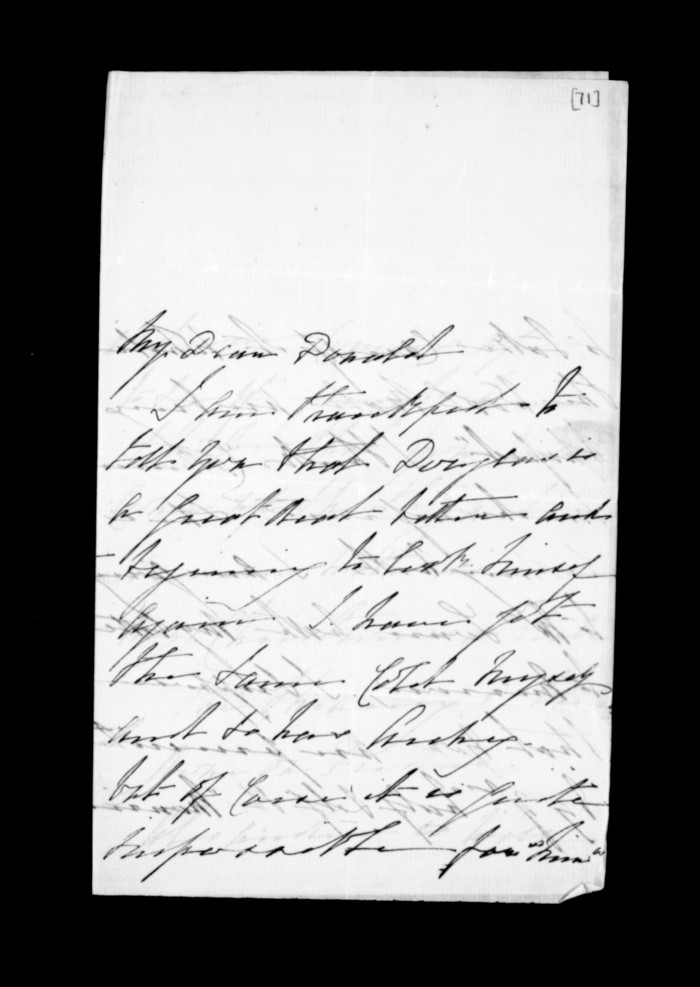 [71]
My Dear Donald
I am thankful to
tell you that Douglas is
a great deal better and
beginning to look himself
again I have got
the same Cold myself
and so has Archy.
but of Corse it is quite
impossible for "him"